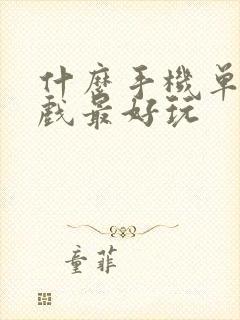 什麼手機單
戲最好玩
童菲